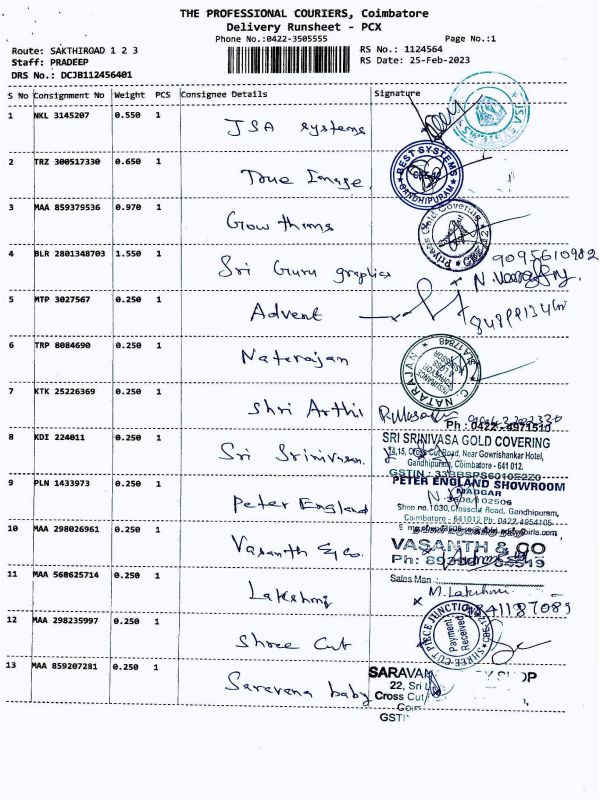 THE PROFESSIONAL COURIERS, Coimbatore
Delivery Runsheet - PCX
Phone No.:0422-3505555
Page No.:1
Route: SAKTHIROAD 1 2 3
Staff: PRADEEP
DRS No.: DCJB112456401
RS No.: 1124564
RS Date: 25-Feb-2023
S No Consignment No Weight PCS Consignee Details Signature
1 NKL 3145207 0.550 1 JSA systems
2 TRZ 300517330 0.650 1 True Image
BEST SYSTEMS
GANDHIPURAM
3 MAA 859379536 0.970 1 Gowthams
Gold Coverings
4 BLR 2801348703 1.550 1 Sri Guru graphics
9095610982
5 MTP 3027567 0.250 1 Advent
6 TRP 8084690 0.250 1 Naterajan
C. NATARAJAN
7 KTK 25226369 0.250 1 Shri Arthi
Ph : 0422-4971510
8 KDI 224011 0.250 1 Sri Srinivasa
SRI SRINIVASA GOLD COVERING
Cross Cut Road, Near Gowrishankar Hotel,
Gandhipuram, Coimbatore - 641 012.
GSTIN : 33BBSPS6010E2Z0
9 PLN 1433973 0.250 1 Peter England
PETER ENGLAND SHOWROOM
MADGAR
Shop no.1030, Crosscut Road, Gandhipuram,
Coimbatore - 641012 Ph: 0422-4954105
10 MAA 298026961 0.250 1 Vasanth & Co.
VASANTH & CO
Ph:
11 MAA 568625714 0.250 1 Lakshmi
Sales Man :
M. Lakshmi
12 MAA 298235997 0.250 1 Shree Cut
SHREE CUT PIECE JUNCTION
Payment
Received
13 MAA 859207281 0.250 1 Saravana baby
SARAVAN
22, Sri
Cross Cut
GSTIN